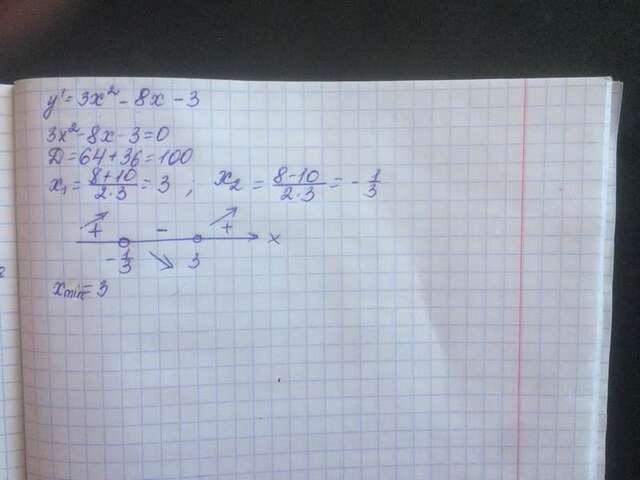 y' = 3x² - 8x - 3
3x² - 8x - 3 = 0
D = 64 + 36 = 100
x₁ = (8+10)/(2·3) = 3 ; x₂ = (8-10)/(2·3) = -1/3
+ - +
-1/3 3 x
xmin = 3